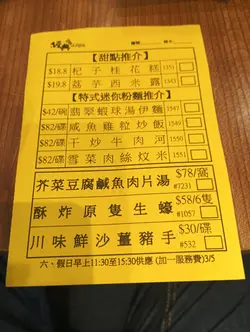 【甜點推介】
$18.8 杞子桂花糕 1351
$19.8 荔芋西米露 1343
【特式迷你粉麵推介】
$42/碗 翡翠蝦球湯伊麵 1547
$82/碟 咸魚雞粒炒飯 1549
$82/碟 干炒牛肉河 1550
$82/碟 雪菜肉絲炆米 1551
芥菜豆腐鹹魚肉片湯 $78/窩 #7231
酥炸原隻生蠔 $58/6隻 #1057
川味鮮沙薑豬手 $30/碟 #532
六、假日早上11:30至15:30供應 (加一服務費)3/5